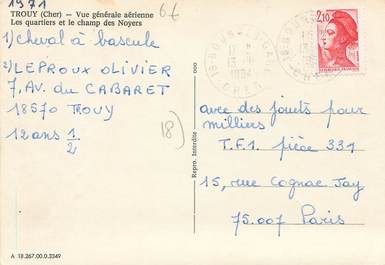 1971
TROUY (Cher) — Vue générale aérienne
Les quartiers et le champ des Noyers
6f
1) Cheval à bascule
2) LEPROUX OLIVIER
7, AV. du CABARET
18570 TROUY
12 ans 1/2
18)
Repro. Interdite
A 18.267.00.0.3349
2,10
1984
CHER
avec des jouets pour
milliers
T.F.1. pièce 331
15, rue Cognac Jay
75.007 Paris